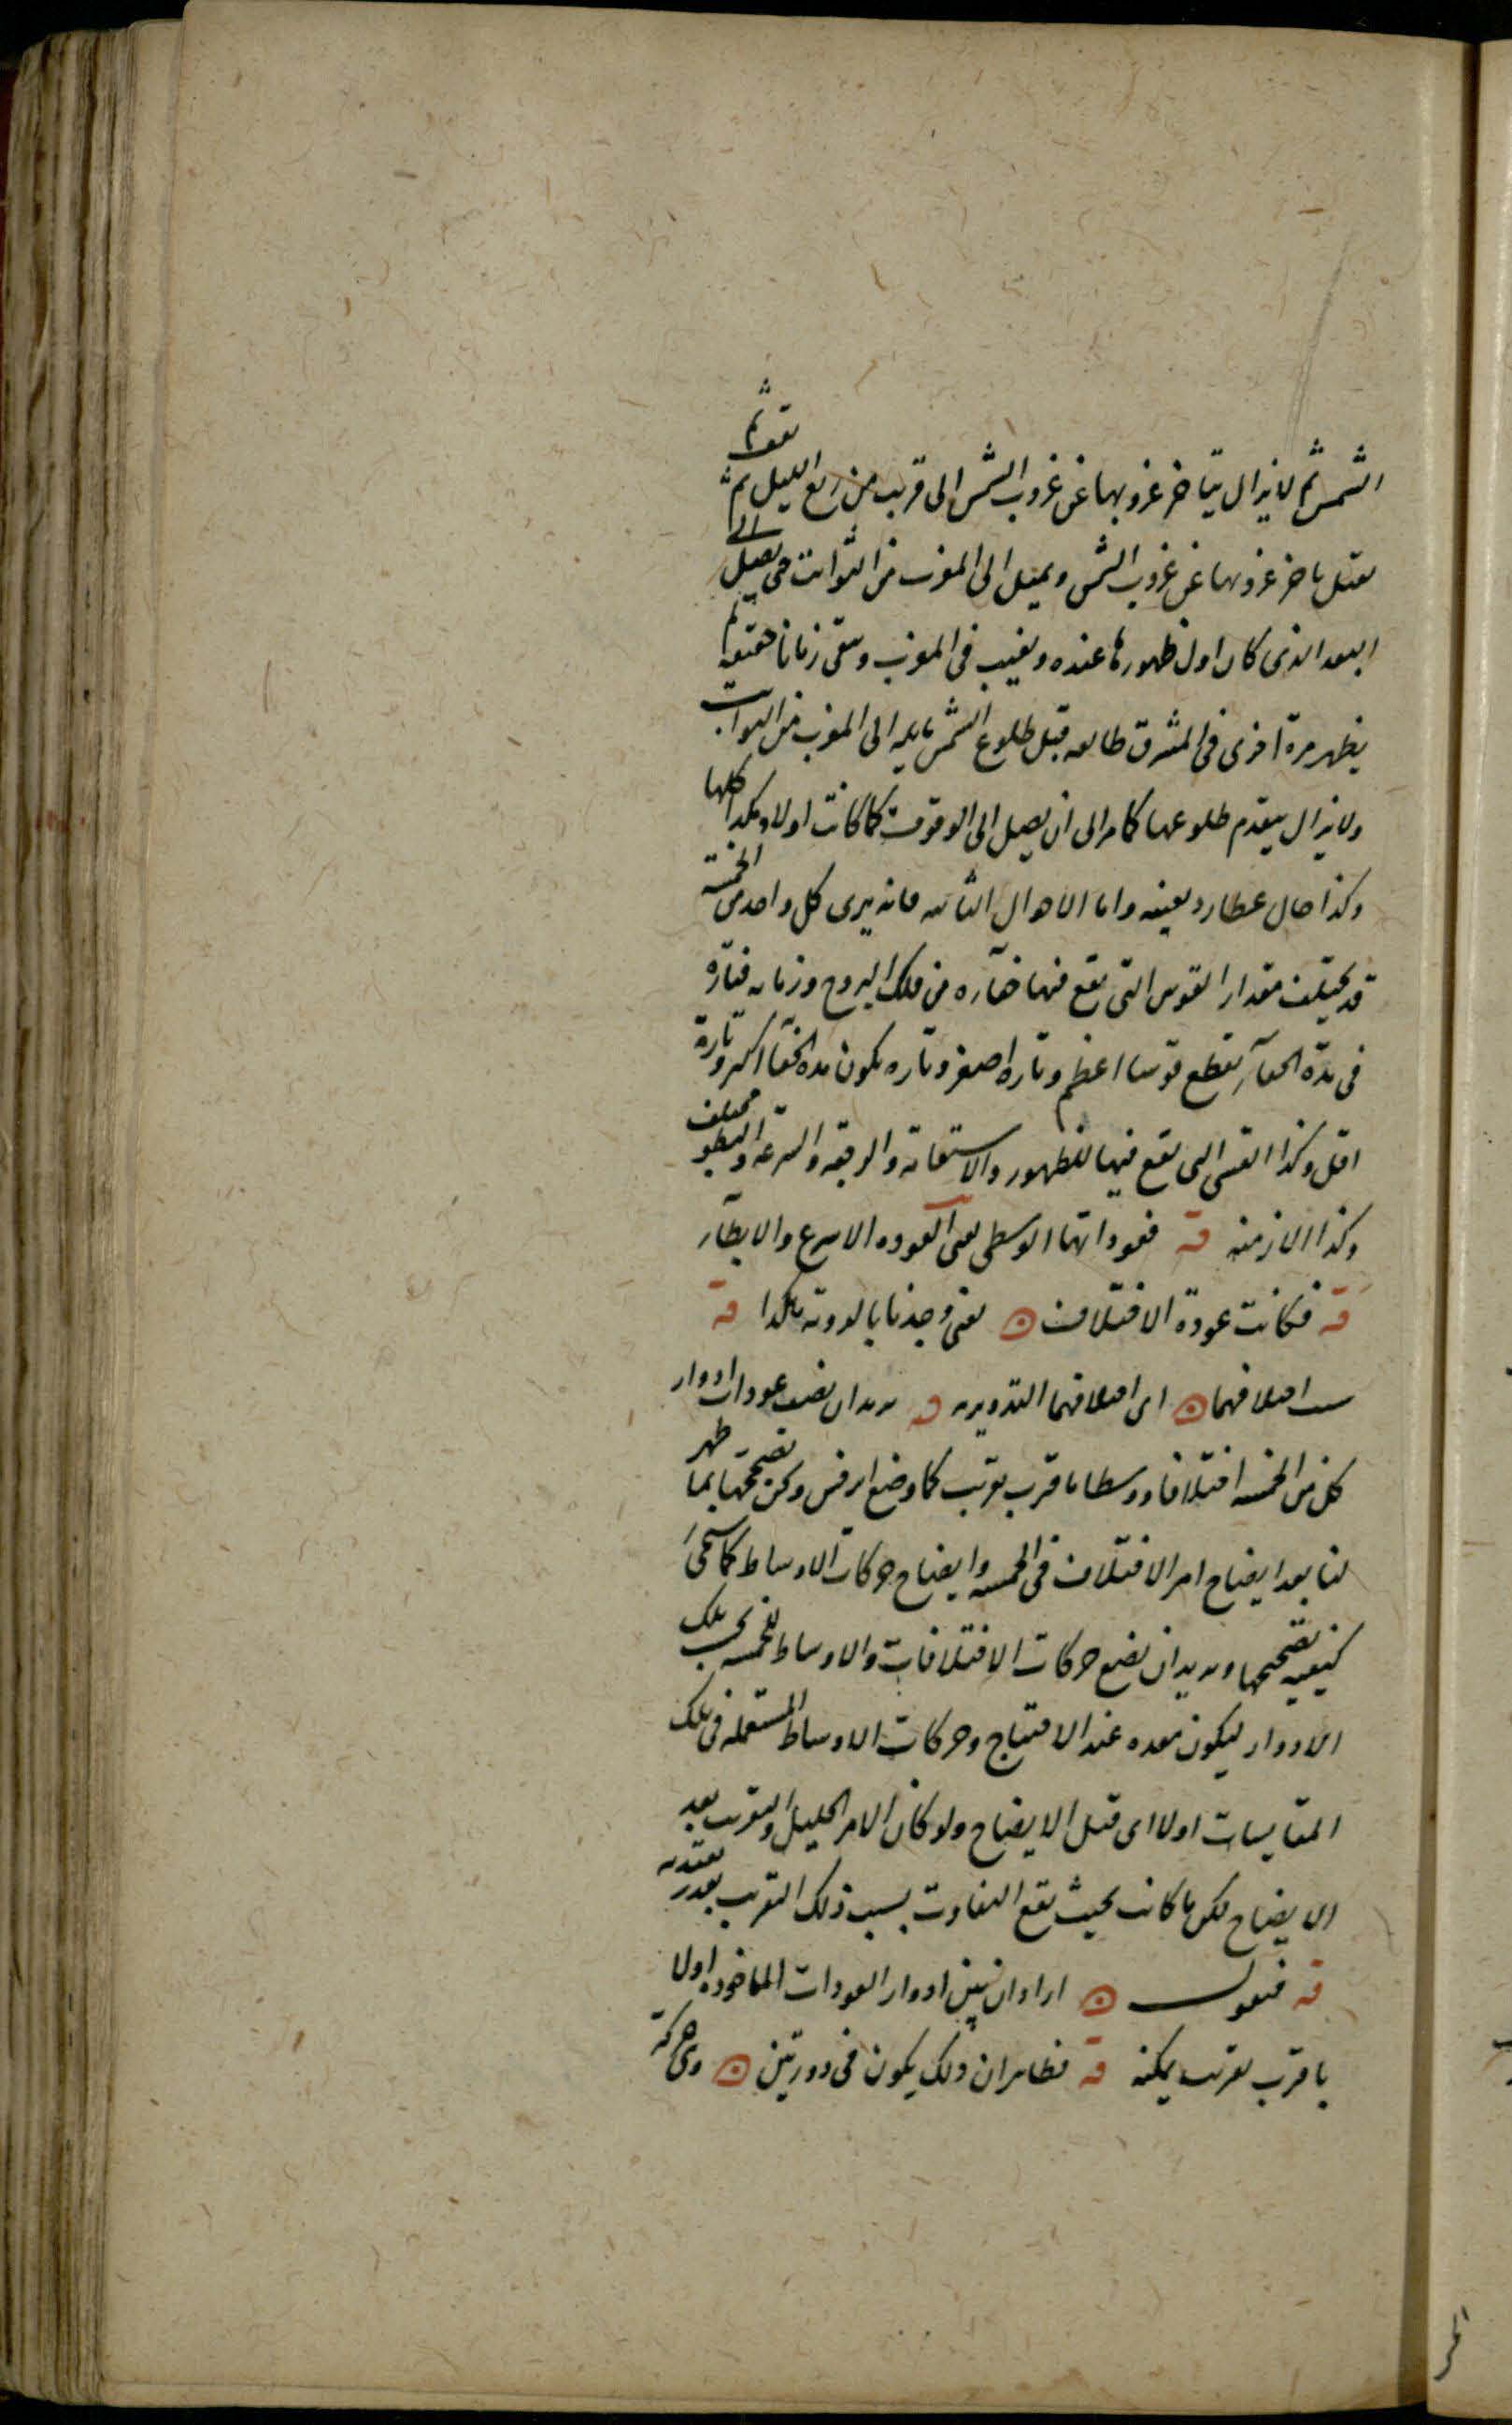 الشمس ثم لا يزال يتاخر غروبها عن غروب الشمس الى قريب من ربع الليل ثم يقف ثم
يقبل تاخر غروبها عن غروب الشمس ويميل الى المغرب من الثوابت حتى يصل الى
البعد الذى كان اول ظهورها عنده ويغيب فى المغرب وتبقى زمانا خفية ثم
يظهر مرة اخرى فى المشرق طالعه قبل طلوع الشمس مايله الى المغرب من الثوابت
ولا يزال يتقدم طلوعها كما مر الى ان يصل الى الوقوف كما كانت اولا وهكذا كلها
وكذا حال عطارد بعينه واما الاحوال الثانيه فانه يرى كل واحد من الخمسة
قد يختلف مقدار القوس التى يقع فيها خفآره من فلك البروج وزمانه فتارة
فى مدة الخفآء يقطع قوسا اعظم وتاره اصغر وتاره يكون مدة الخفآ اكثر وتارة
اقل وكذا القسى التى يقع فيها للظهور والاستقامة والرجعه والسرعه والبطو مختلف
وكذا الازمنه قه فعوداتها الوسطى يعنى العوده الاسرع والابطآر
قه فكانت عودة الاختلاف يعنى وجدنا بالدورية هكذا قه
اختلافهما اى اختلافهما التدويريه قه يريد ان يضع عودات ادوار
كل من الخمسه اختلافا ووسطا باقرب تقريب كما وضع ابرخس ولكن تصحيحها بما ظهر
لنا بعد ايضاح امر الاختلاف فى الخمسه وايضاح حركات الاوساط كما سيجئ
كيفيه تصحيحها ويريد ان يضع حركات الاختلافات والاوساط للخمسه بحسب تلك
الادوار ليكون معده عند الاحتياج وحركات الاوساط المستعمله فى تلك
المقايسات اولا اى قبل الايضاح ولو كان الامر الجليل والتقريب بعد
الايضاح لكن ما كانت بحيث يقع التفاوت بسبب ذلك التقريب بقدر يعتد به
قه فنقول اراد ان يبين ادوار العودات الماخوده اولا
باقرب تقريب يمكنه قه فظاهر ان ذلك يكون فى دورتين وهى حركة